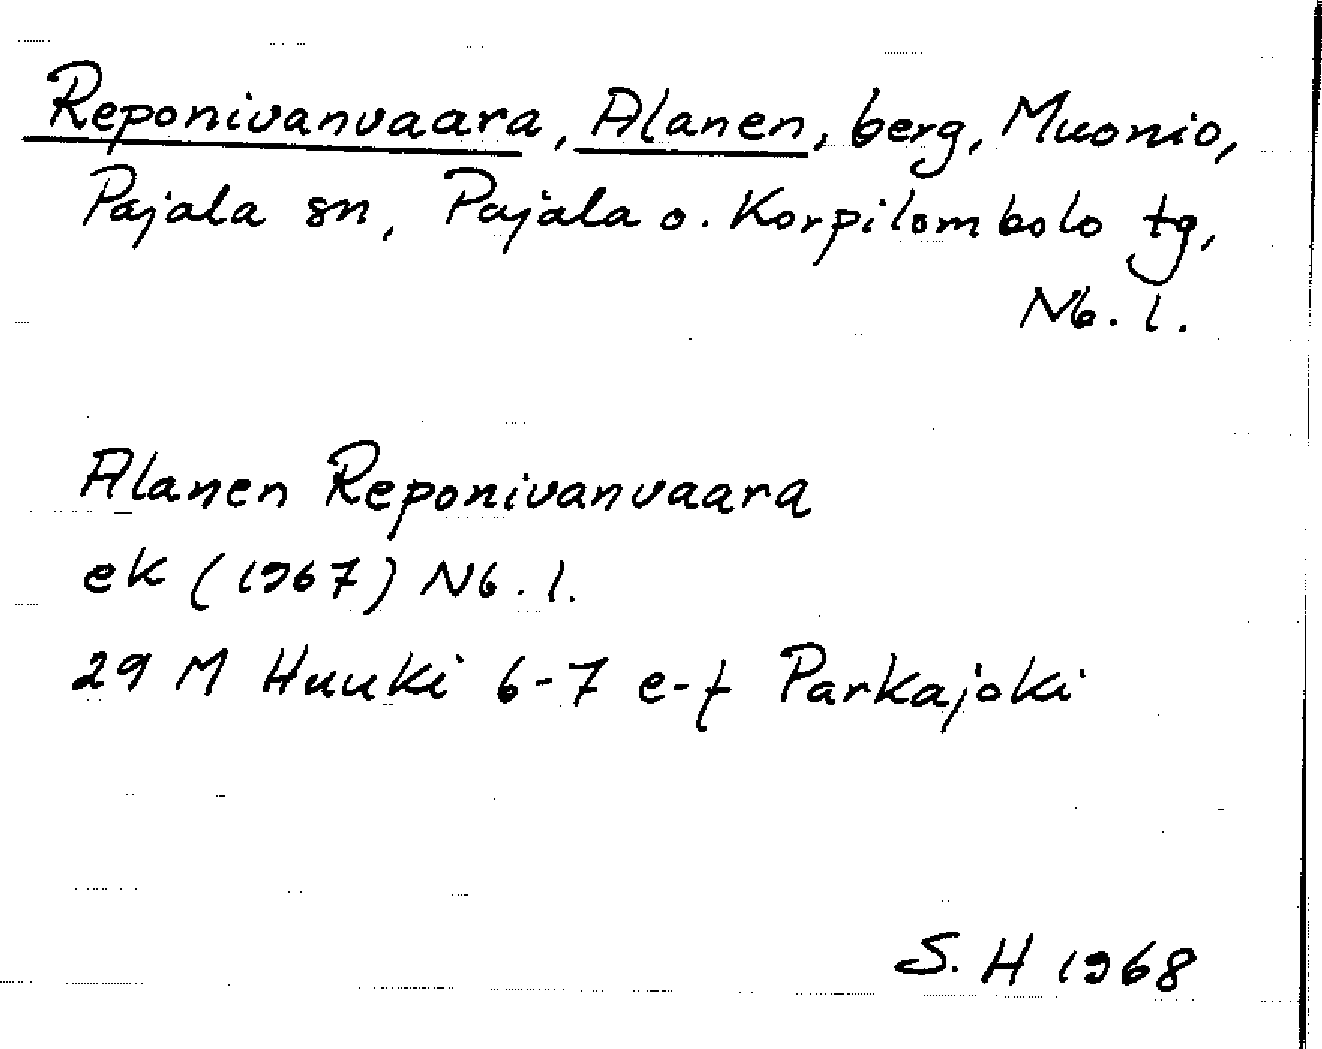 Reponivanvaara, Alanen, berg, Muonio,
Pajala sn, Pajala o. Korpilombolo tg,
Nb. l.
Alanen Reponivanvaara
ek (1967) Nb. l.
29 M Huuki 6-7 e-f Parkajoki
S. H 1968